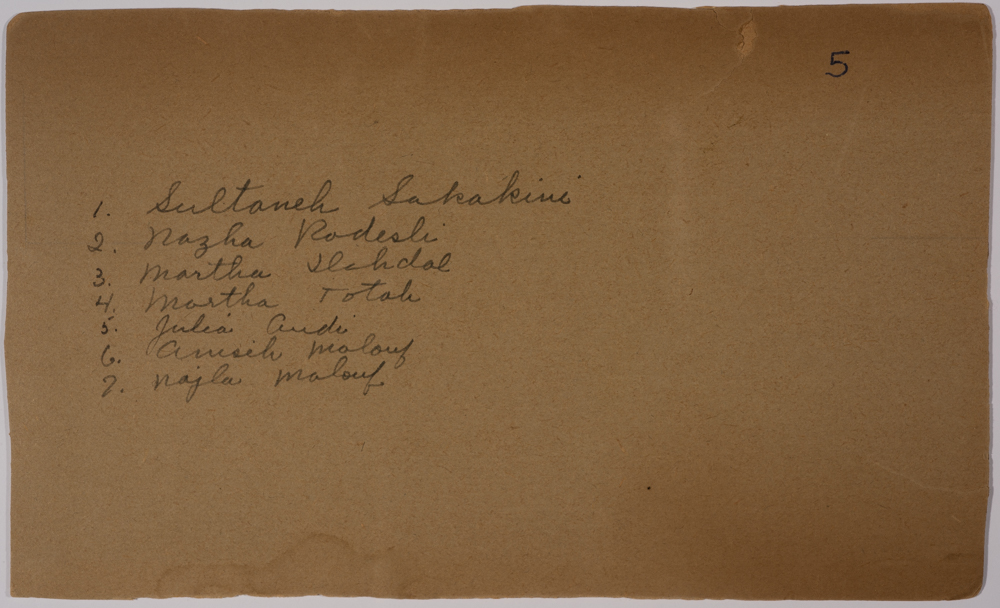 5
1. Sultaneh Sakakini
2. Nazha Rodesli
3. Martha
4. Martha Totah
5. Julia Audi
6. Aniseh Malouf
7. Najla Malouf